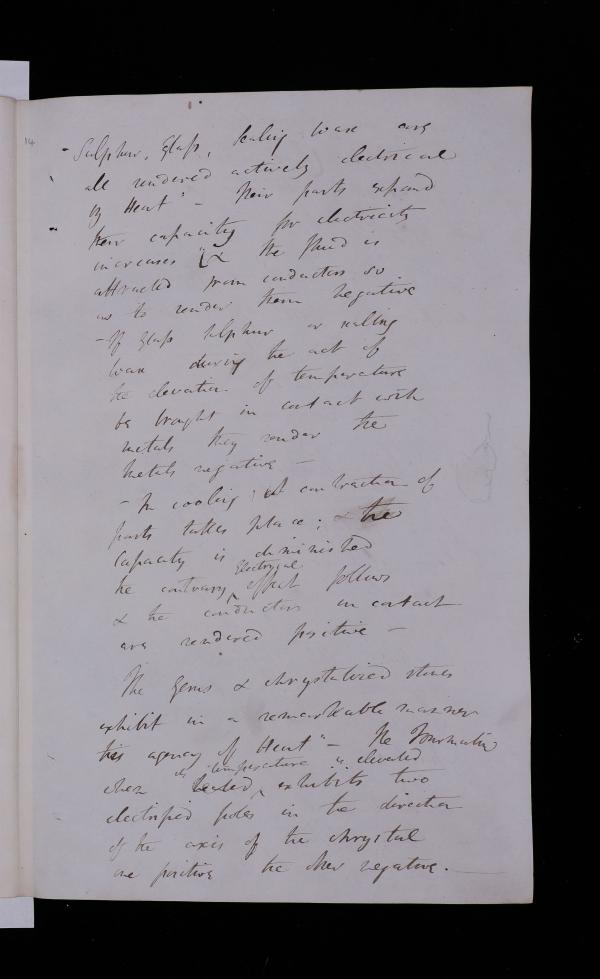 14
- Sulphur, Glass, sealing wax are
all rendered actively electrical
by Heat" - Their parts expand
their capacity for electricity
increases & the fluid is
attracted from conductors so
as to render them negative
- If glass sulphur or sealing
wax during the act of
the elevation of temperature
be brought in contact with
metals they render the
metals negative -
- In cooling a contraction of
parts takes place; & the
capacity is diminished
Electrical
the contrary ^ effect follows
& the conductors in contact
are rendered positive -
The gems & chrystalized stones
exhibit in a remarkable manner
this agency of Heat" - The Tourmalin
its temperature is elevated
when heated ^ exhibits two
electrified poles in the direction
of the axis of the chrystal
one positive the other negative. -